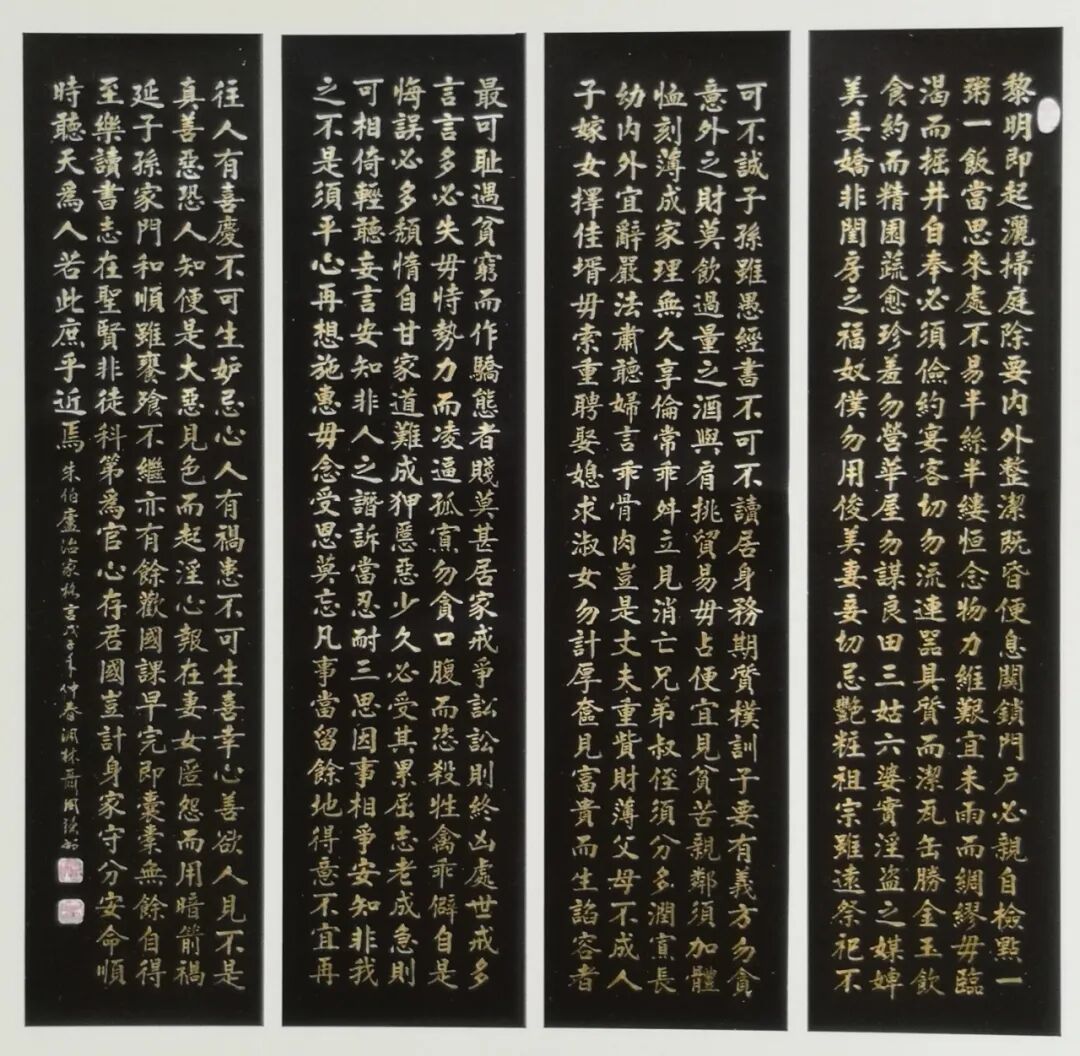 黎明即起灑掃庭除要内外整潔既昏便息關鎖門户必親自檢點一
粥一飯當思來處不易半絲半縷恒念物力維艱宜未雨而綢繆毋臨
渴而掘井自奉必須儉約宴客切勿流連器具質而潔瓦缶勝金玉飲
食約而精園蔬愈珍羞勿營華屋勿謀良田三姑六婆實淫盜之媒婢
美妾嬌非閨房之福奴僕勿用俊美妻妾切忌艷粧祖宗雖遠祭祀不
可不誠子孫雖愚經書不可不讀居身務期質樸訓子要有義方勿貪
意外之財莫飲過量之酒與肩挑貿易毋占便宜見貧苦親鄰須加體
恤刻薄成家理無久享倫常乖舛立見消亡兄弟叔侄須分多潤寡長
幼内外宜辭嚴法肅聽婦言乖骨肉豈是丈夫重貲財薄父母不成人
子嫁女擇佳壻毋索重聘娶媳求淑女勿計厚奩見富貴而生諂容者
最可耻遇貧窮而作驕態者賤莫甚居家戒爭訟訟則終凶處世戒多
言言多必失毋恃勢力而凌逼孤寡勿貪口腹而恣殺牲禽乖僻自是
悔誤必多頹惰自甘家道難成狎慝惡少久必受其累屈志老成急則
可相倚輕聽妄言安知非人之譖訴當忍耐三思因事相爭安知非我
之不是須平心再想施惠毋念受恩莫忘凡事當留餘地得意不宜再
往人有喜慶不可生妒忌心人有禍患不可生喜幸心善欲人見不是
真善惡恐人知便是大惡見色而起淫心報在妻女匿怨而用暗箭禍
延子孫家門和順雖饔飧不繼亦有餘歡國課早完即囊橐無餘自得
至樂讀書志在聖賢非徒科第爲官心存君國豈計身家守分安命順
時聽天爲人若此庶乎近焉
朱伯廬治家格言戊子年仲春